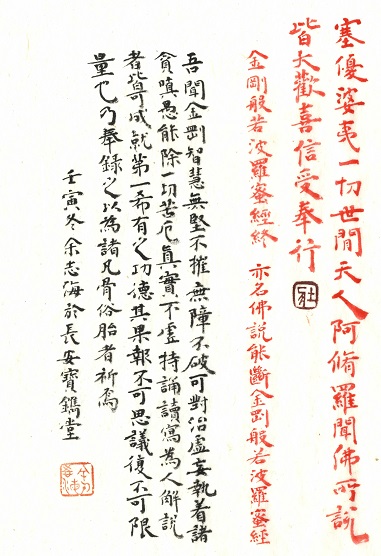 塞優婆夷一切世間天人阿脩羅聞佛所說
皆大歡喜信受奉行
金剛般若波羅蜜經終 亦名佛說能斷金剛般若波羅蜜經
吾聞金剛智慧無堅不摧無障不破可對治虛妄執着諸
貪嗔愚能除一切苦厄真實不虛持誦讀寫為人解說
者皆可成就第一希有之功德其果報不可思議復不可限
量也乃奉錄之以為諸凡骨俗胎者祈焉
壬寅冬余志海於長安寶鐫堂